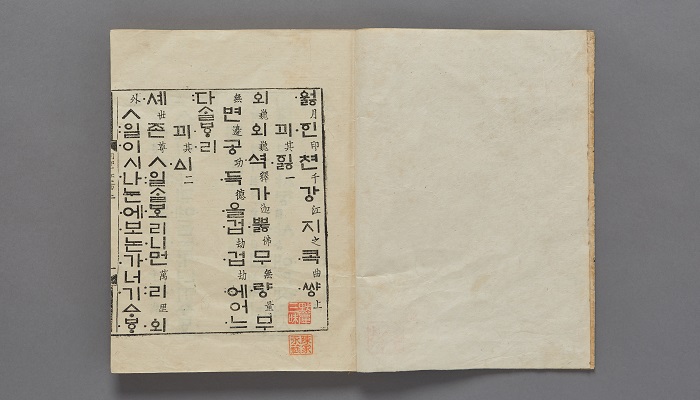 워ᇙ月ᅙᅵᆫ印쳔千강江지之콕曲썅上
끠其ᅙᅵᇙ一
외巍외巍셕釋가迦뿌ᇙ佛무無량量무
無변邊공功득德을겁劫겁劫에어느
다ᄉᆞᆯᄫᅩ리
끠其ᅀᅵ二
셰世존尊ㅅ일ᄉᆞᆯᄫᅩ리니먼萬리里외
外ㅅ일이시나눈에보논가너기ᅀᆞᄫᆞ